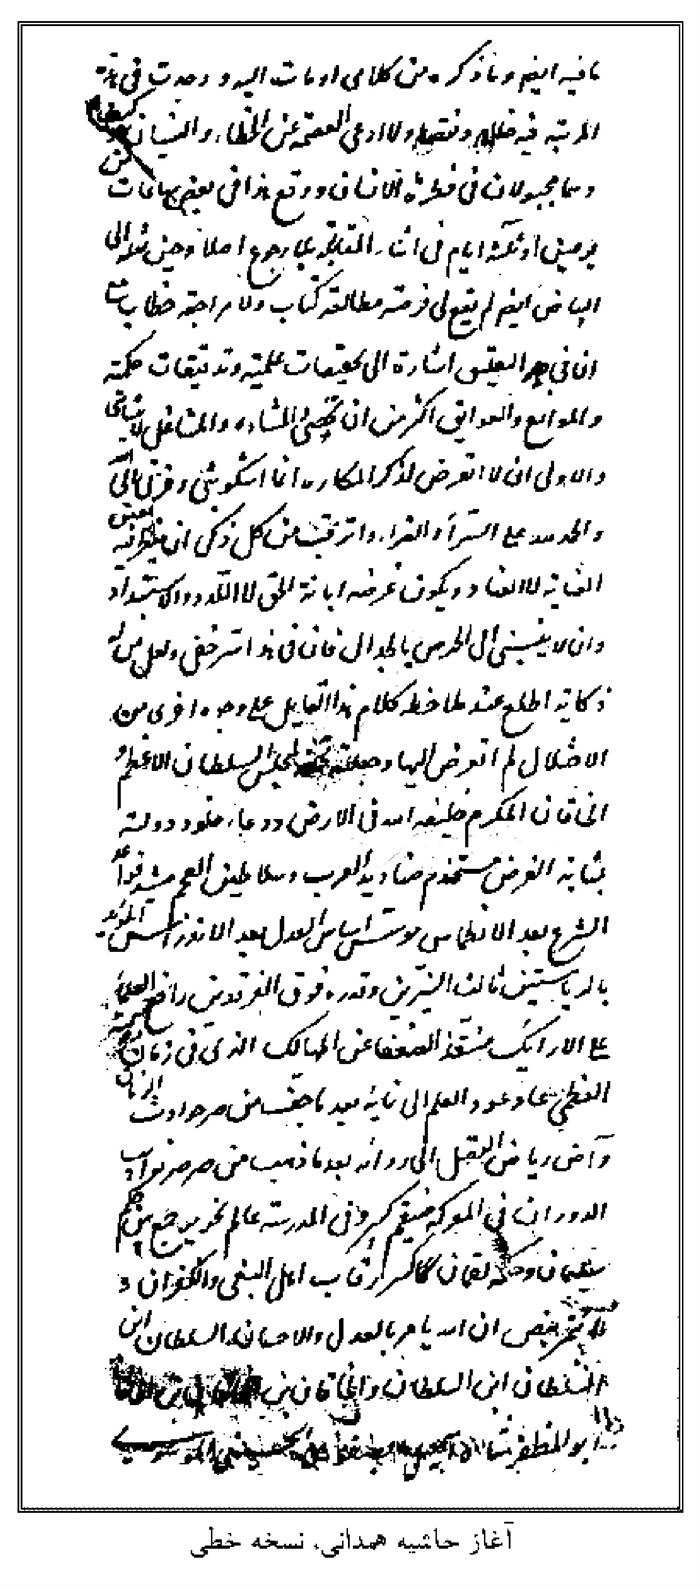 ما فيه ايضا وما ذكره من كلامى او مات اليه ووجدت فى هذه
المرتبة فيه خللا ونقصا ولا ادعى العصمة عن الخطاء والنسيان
وهما مجبولان فى فطرة الانسان ووقع هذا فى بعض ساعات
يومين او ثلثة ايام فى اثناء
البياض ايضا لم يقع لى فرصة مطالعة كتاب ولا مراجعة خطاب
ان فى التعليق اشارة الى تحقيقات علمية وتدقيقات حكمية
والموانع والعوائق اكثر من ان تحصى المشاهد والمشاغل
والاولى ان لا اتعرض لذكر المكاره انما اشكو بثى وحزنى الى الله
والحمد لله على السراء والضراء واترقب من كل ذكى ان ينظر فيه بعين
العناية لا العناد ويكون غرضه ابانة الحق لا اللدد والاستبداد
وان لا ينسبنى الى الحرص بالجدال فان فى هذا سر خفى ولعل من له
ذكاية اطلع عند ملاحظة كلام هذا القايل على وجوه اخرى من
الاختلال لم اتعرض اليها وجعلته تحفة لمجلس السلطان الاعظم و
الخاقان المكرم خليفة الله فى الارض ودعاء خلود دولته
بمثابة الفرض مستخدم صناديد العرب وسلاطين العجم مشيد قواعد
الشرع بعد الانطماس موسس اساس العدل بعد الاندراس المؤيد
بالرياستين ثالث النيرين وقدره فوق الفرقدين رافع العلماء
على الارايك منقذ الضعفا عن المهالك الذى فى زمان
العظمى عاد عود العلم الى نمائه بعد ما جف من حر حوادث الزمان
وآض رياض الفضل الى روائه بعد ما ذهب من صرصر نوائب
الدوران فى المعركة ضيغم كرو فى المدرسة عالم نحرير جمع بين حكم
سليمان وحكمة لقمان كاسر رقاب اهل البغى والكفران و
بنص ان الله يامر بالعدل والاحسان السلطان ابن
السلطان ابن السلطان والخاقان بن
ابو المظفر شاه الحسينى الموسوى
آغاز حاشیه همدانی، نسخه خطی